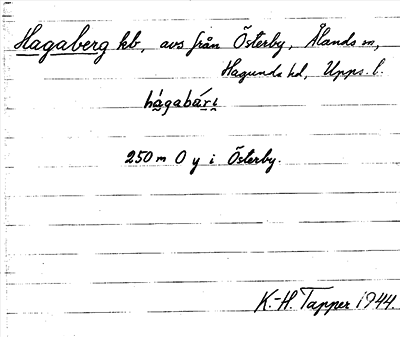 Hagaberg kb, avs från Österby, Ålands sn,
Hagunda hd, Upps. l.
hágabári
250 m O y i Österby.
K.-H. Tapper 1944.